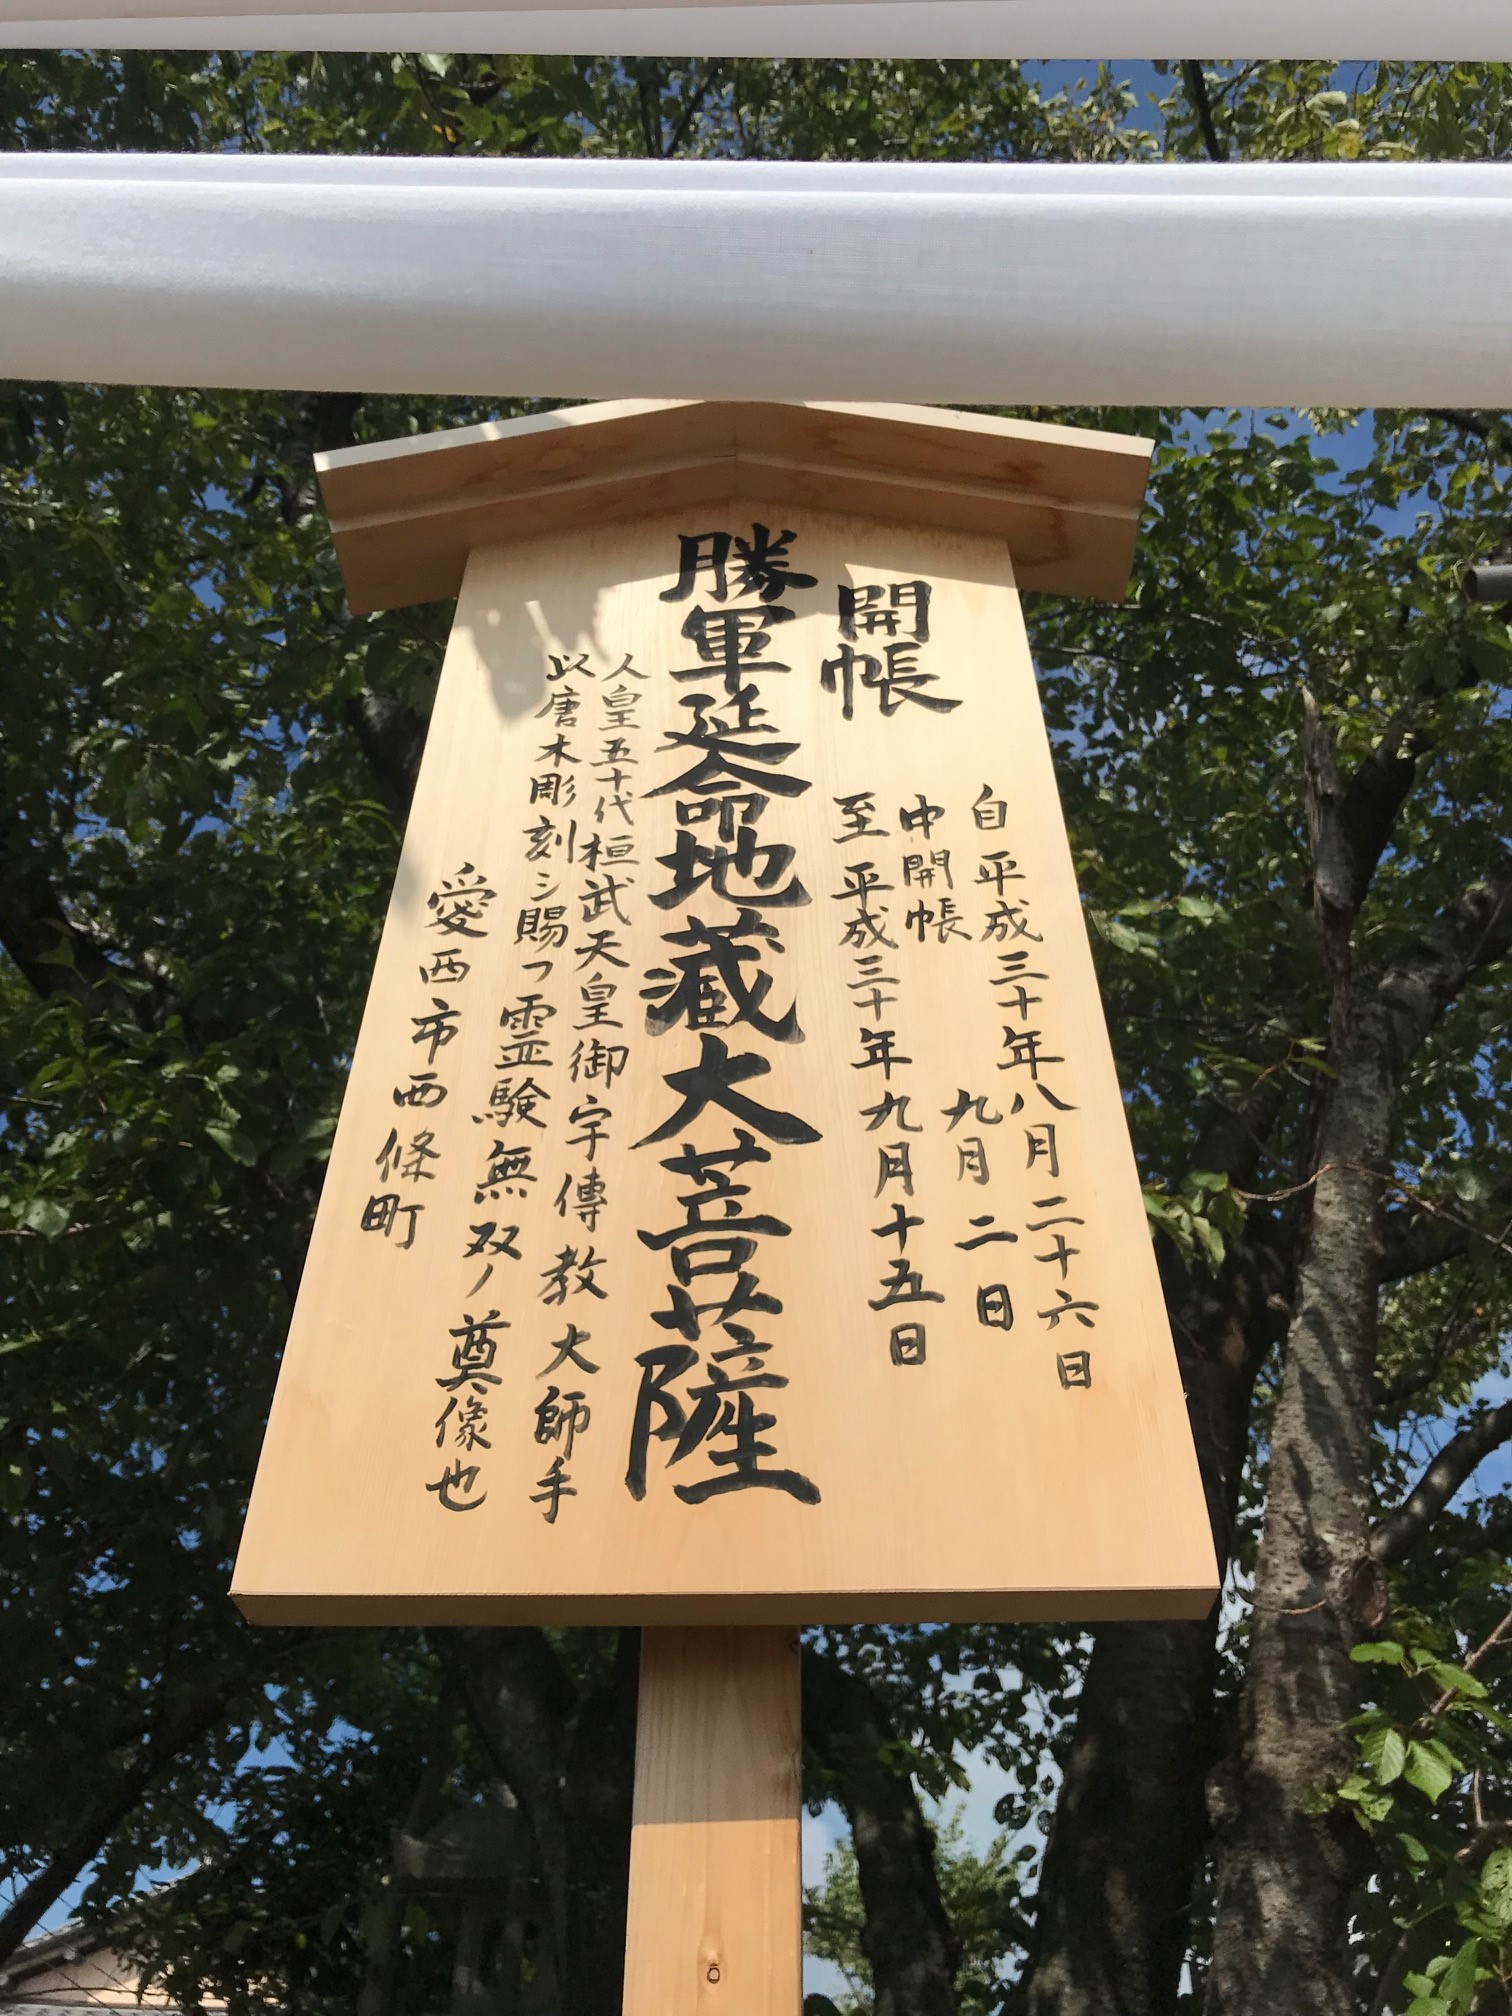 開帳
自平成三十年八月二十六日
中開帳 九月二日
至平成三十年九月十五日
勝軍延命地蔵大菩薩
人皇五十代桓武天皇御宇傳教大師手
以唐木彫刻シ賜フ霊験無双ノ尊像也
愛西市西條町